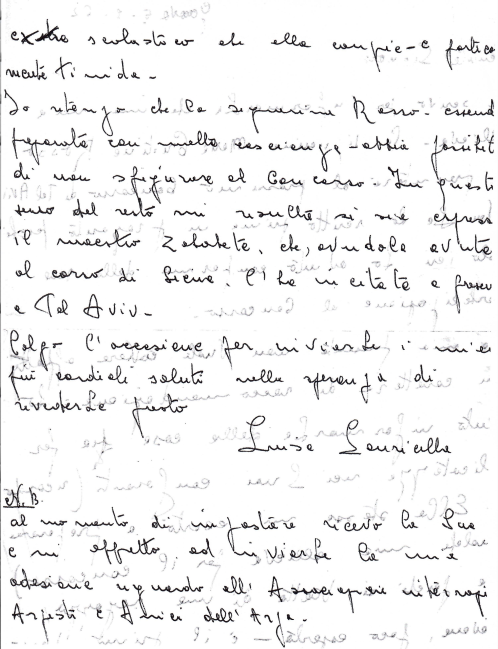 extra scolastico che ella compie - è partico
mente timida -
Io ritengo che la signorina Rosso - essend
preparata con molta coscienza - abbia possibit
di non sfigurare al Concorso. In questi
senso del resto mi risulta si sia espres
il maestro Zabaleta, che, avendola avuta
al corso di Siena, l'ha incitata a presen
a Tel Aviv -
Colgo l'occasione per inviarLe i miei
più cordiali saluti nella speranza di
rivederLa presto
Luisa
N.B.
al momento, di impostare ricevo la Sua
e mi affretto ad inviarLe la mia
adesione riguardo all'Associazione
Arpisti e Amici dell'Arpa -